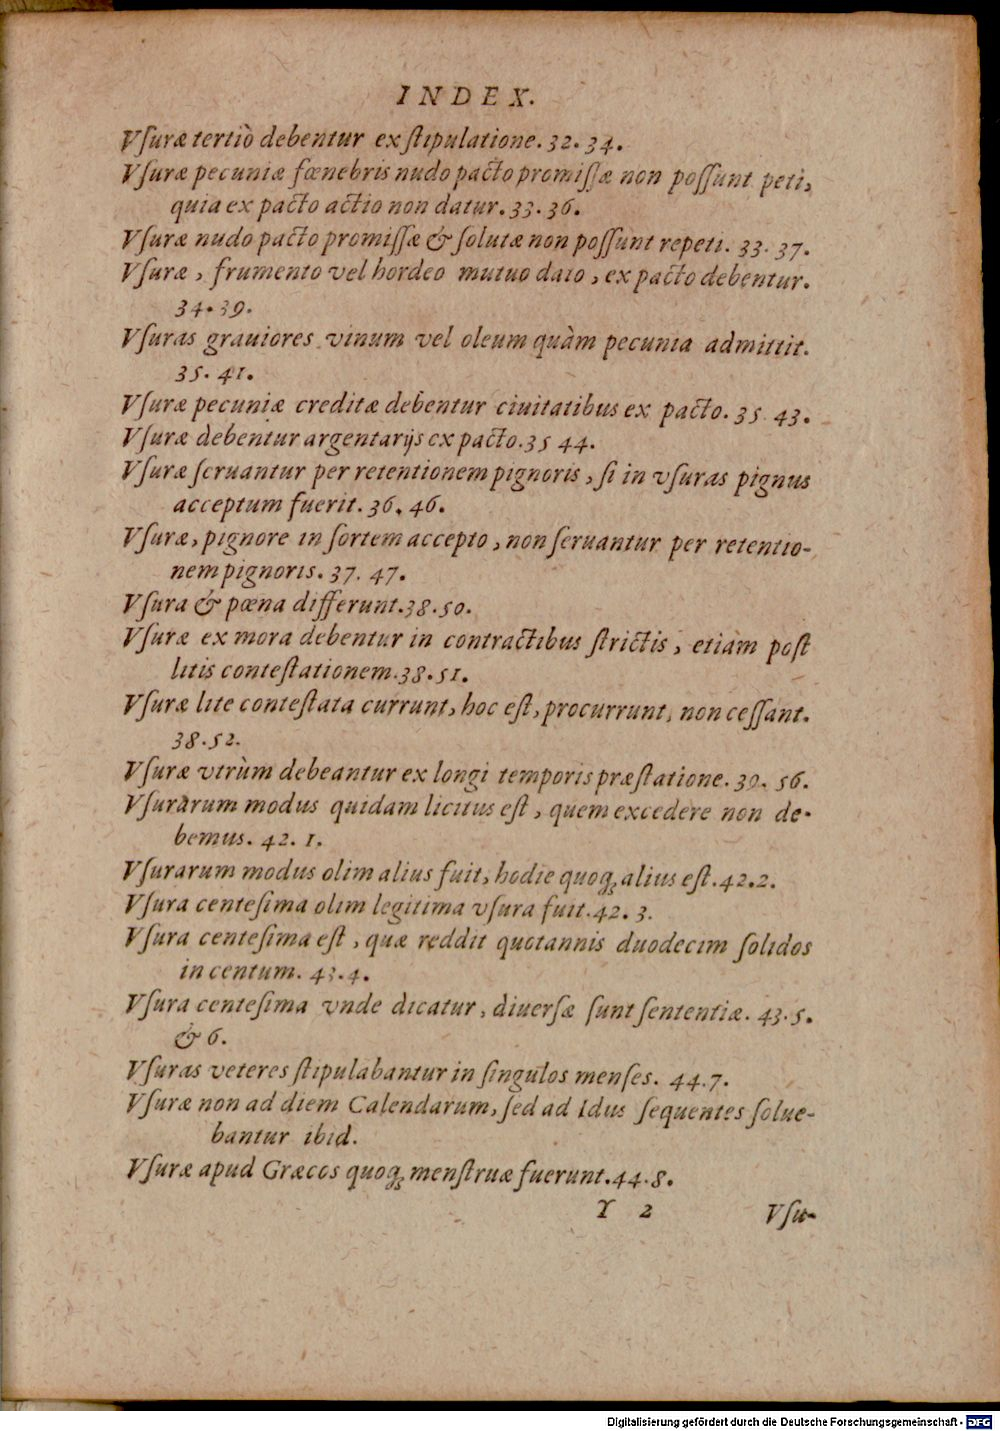 INDEX.
Vſuræ tertiò debentur ex ſtipulatione. 32. 34.
Vſuræ pecuniæ fœnebris nudo pacto promiſſæ non poſſunt peti,
quia ex pacto actio non datur. 33. 36.
Vſuræ nudo pacto promiſſæ & ſolutæ non poſſunt repeti. 33. 37.
Vſuræ, frumento vel hordeo mutuo dato, ex pacto debentur.
34. 39.
Vſuras grauiores vinum vel oleum quàm pecunia admittit.
35. 41.
Vſuræ pecuniæ creditæ debentur ciuitatibus ex pacto. 35. 43.
Vſuræ debentur argentarijs ex pacto. 35 44.
Vſuræ ſeruantur per retentionem pignoris, ſi in vſuras pignus
acceptum fuerit. 36. 46.
Vſuræ, pignore in ſortem accepto, non ſeruantur per retentio-
nem pignoris. 37. 47.
Vſura & pœna differunt. 38. 50.
Vſuræ ex mora debentur in contractibus ſtrictis, etiam poſt
litis conteſtationem. 38. 51.
Vſuræ lite conteſtata currunt, hoc eſt, procurrunt, non ceſſant.
38. 52.
Vſuræ vtrùm debeantur ex longi temporis præſtatione. 39. 56.
Vſurarum modus quidam licitus eſt, quem excedere non de-
bemus. 42. 1.
Vſurarum modus olim alius fuit, hodie quoq; alius eſt. 42. 2.
Vſura centeſima olim legitima vſura fuit. 42. 3.
Vſura centeſima eſt, quæ reddit quotannis duodecim ſolidos
in centum. 43. 4.
Vſura centeſima vnde dicatur, diuerſæ ſunt ſententiæ. 43. 5.
& 6.
Vſuras veteres ſtipulabantur in ſingulos menſes. 44. 7.
Vſuræ non ad diem Calendarum, ſed ad Idus ſequentes ſolue-
bantur ibid.
Vſuræ apud Græcos quoq; menſtruæ fuerunt. 44. 8.
Y 2 Vſu-
Digitalisierung gefördert durch die Deutsche Forschungsgemeinschaft - DFG